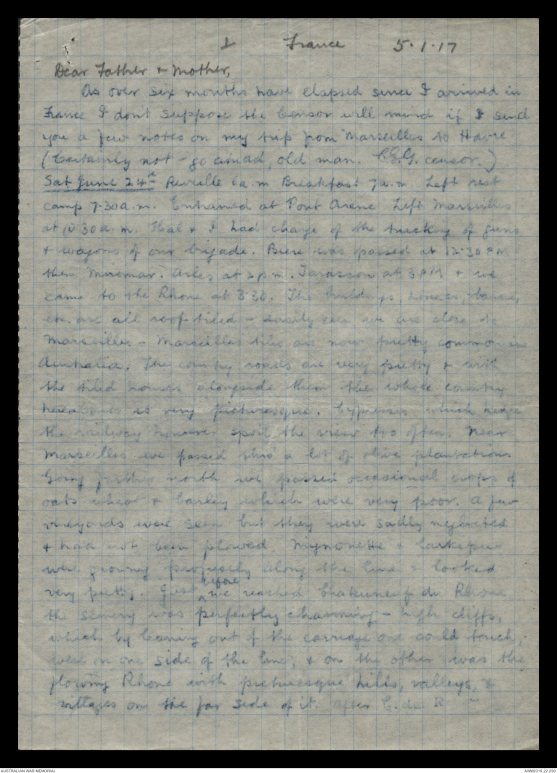 1 France 5.1.17
Dear Father & Mother,
As over six months have elapsed since I arrived in
France I don't suppose the Censor will mind if I send
you a few notes on my trip from Marseilles to Havre
(Certainly not - go ahead, old man. C.E.G. censor.)
Sat June 24th Reveille 6 a.m Breakfast 7 a.m. Left rest
camp 7.30 a.m. Entrained at Port Arenc Left Marseilles
at 10.30 a.m. Hal & I had charge of the trucking of guns
& wagons of our brigade. Berre was passed at 12.30 PM
then Miramar. Arles at 2 p.m. Tarascon at 3 PM & we
came to the Rhone at 3.30. The buildings, houses, barns,
etc are all roof-tiled - easily see we are close to
Marseilles - Marseilles tiles are now pretty common in
Australia. The country roads are very pretty & with
the tiled houses alongside them the whole country
hereabouts is very picturesque. Cypresses which hedge
the railway however spoil the view too often. Near
Marseilles we passed thro' a lot of olive plantations
Going further north we passed occasional crops of
oats wheat & barley which were very poor. A few
vineyards were seen but they were sadly neglected
& had not been plowed. Mignonette & larkspur
were growing profusely along the line & looked
very pretty. Just before we reached Chateauneuf du Rhone
the scenery was perfectly charming - high cliffs,
which by leaning out of the carriage one could touch,
were on one side of the line, & on the other was the
flowing Rhone with picturesque hills, valleys, &
villages on the far side of it. After C. du R
AUSTRALIAN WAR MEMORIAL